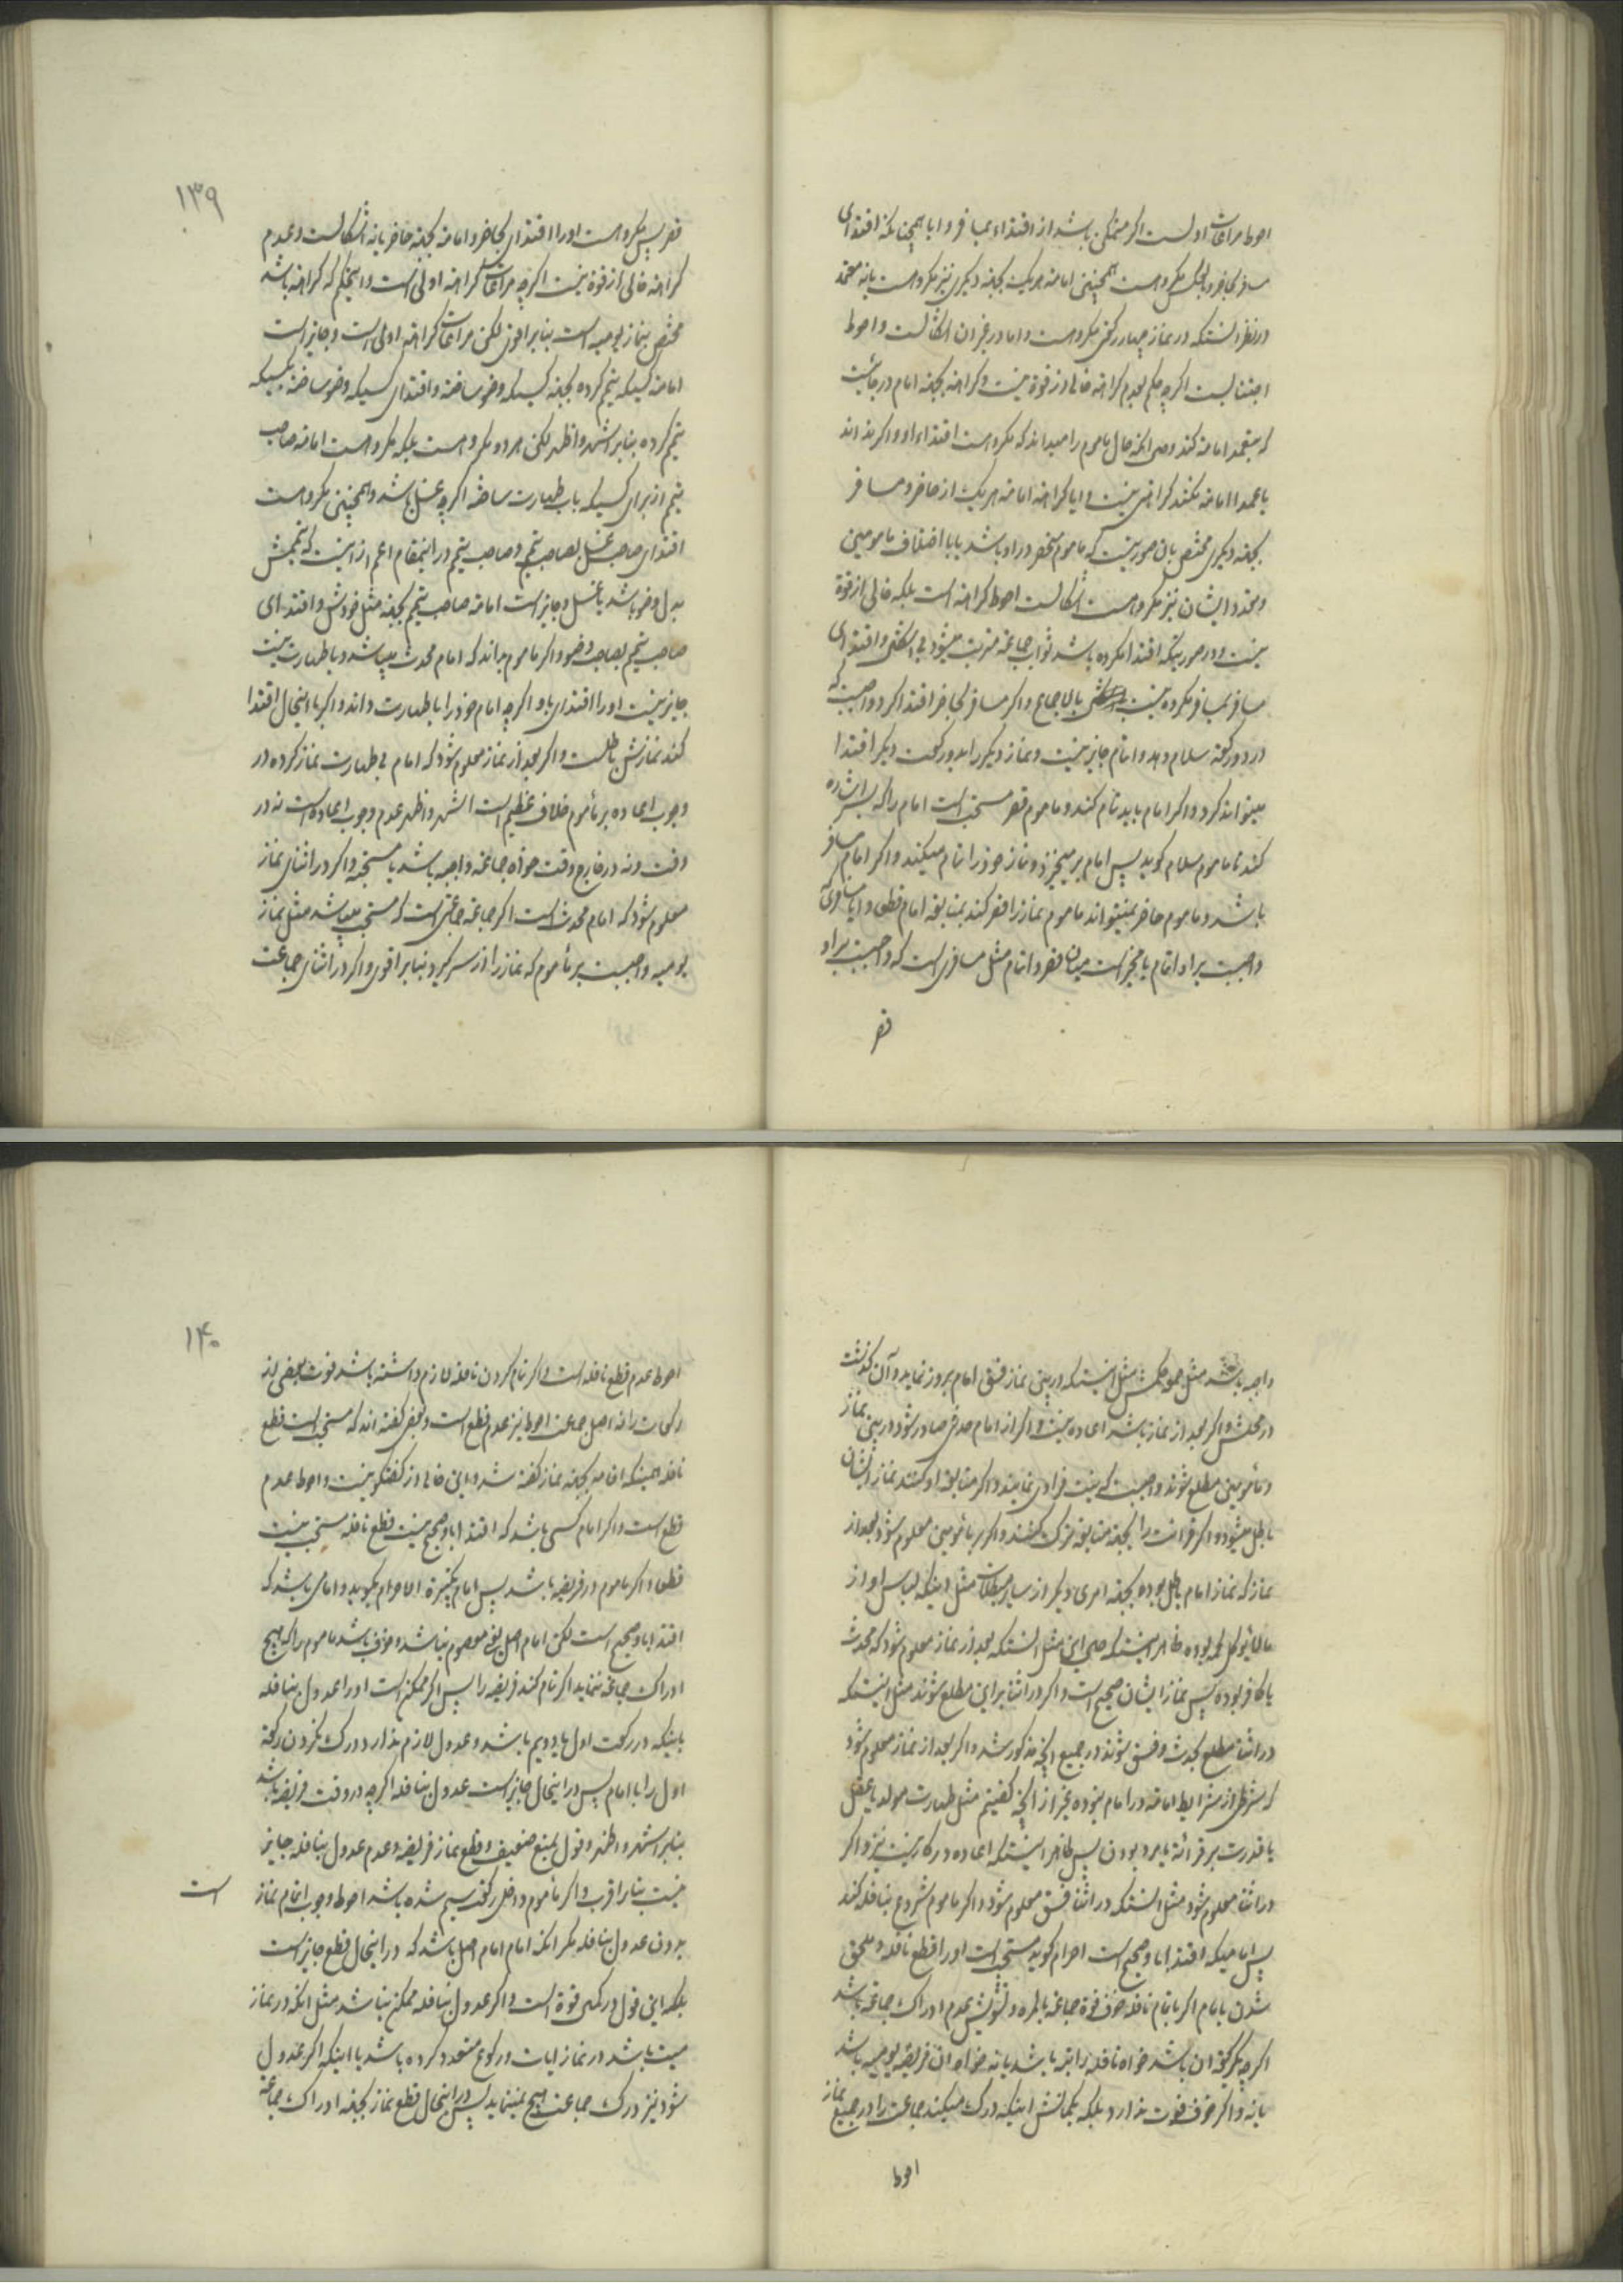 احوط مراعات اولست اکر متمکن باشد از اقتداء بمسافر و ایا همچنانکه اقتدای
مسافر بحاضر و بعکس مکروهست همچنین امامة هریک بجهة دیکری نیز مکروهست یا نه معتمد
در نظر انستکه در نماز چهار رکعتی مکروهست و اما در غیر ان اشکالست و احوط
اجتنابست اکرچه حکم بعدم کراهة خالی از قوة نیست و کراهة بجهة امام در جائیست
که بتعمد امامة کند و می انکه حال ماموم را میداند که مکروهست اقتداء او و اکر نداند
یا عمدا امامة نکند کراهتی نیست و ایا کراهة امامة هریک از حاضر و مسافر
بجهة دیکری مختص بان صورتیست که ماموم منحصر در او باشد یا با اختلاف مامومین
و تعدد ایشان نیز مکروهست اشکالست احوط کراهة است بلکه خالی از قوة
نیست و در صورتیکه اقتدا مکرده باشد ثواب جماعة مترتب میشود بی اشکال و اقتدای
مسافر بمسافر مکروه نیست بالاجماع و اکر مسافر بحاضر اقتدا کرد واجبست که
در دو رکعة سلام دهد و اتمام جایز نیست و نماز دیکر را بدو رکعت دیکر اقتدا
میتواند کرد و اکر امام باید تمام کند و ماموم قصر مستحب است امام را که بسر اشاره
کند تا ماموم سلام کوید پس امام برمیخیزد و نماز خود را تمام میکند و اکر امام مسافر
باشد و ماموم حاضر نمیتواند ماموم نماز را قصر کند بمتابعة امام قطعا و ایا مسافری که
واجبست بر او اتمام یا مخیر است میان قصر و اتمام مثل مسافری است که واجبست بر او
قصر
۱۳۹
قصر پس مکروهست او را اقتدای بحاضر و امامة بجهة حاضر یا نه اشکالست و عدم
کراهة خالی از قوة نیست اکرچه مراعات کراهة اولی است و این حکم که کراهة باشد
مختص بنماز یومیه است بنا بر اقوی لکن مراعات کراهة اولی است و جایز است
امامة کسیکه تیمم کرده بجهة کسیکه وضو ساخته و اقتدای کسیکه وضو ساخته بکسیکه
تیمم کرده بنا بر اشهر و اظهر لکن هر دو مکروهست بلکه مکروهست امامة صاحب
تیمم از برای کسیکه باب طهارت ساخته اکرچه غسل باشد و همچنین مکروهست
اقتدای صاحب غسل بصاحب تیمم و صاحب تیمم در اینمقام اعم از اینست که تیممش
بدل وضو باشد یا غسل و جایز است امامة صاحب تیمم بجهة مثل خودش و اقتدای
صاحب تیمم بصاحب وضو و اکر ماموم بداند که امام محدث میباشد و با طهارت نیست
جایز نیست او را اقتدای باو اکرچه امام خود را با طهارت داند و اکر با اینحال اقتدا
کند نمازش باطلست و اکر بعد از نماز معلوم شود که امام بی طهارت نماز کرده در
وجوب اعاده بر ماموم خلاف عظیم است اشهر و اظهر عدم وجوب اعاده است نه در
وقت و نه در خارج وقت خواه جماعة واجبه باشد یا مستحبه و اکر در اثنای نماز
معلوم شود که امام محدث است اکر جماعة جماعتی است که مستحب میباشد مثل نماز
یومیه واجبست بر ماموم که نماز را از سر کیرد بنا بر اقوی و اکر در اثنای جماعت
واجبه باشد مثل جمعه حکمش مثل اینستکه در بین نماز فسق امام بروز نماید و آن کذشت
در محلش و اکر بعد از نماز باشد اعاده نیست و اکر از امام حدثی صادر شود در بین نماز
و مأمومین مطلع شوند واجبست که نیت فرادی نمایند و اکر متابعة او کنند نماز ایشان
باطل میشود و اکر قرائت را بجهة متابعة ترک کنند و اکر بر مأمومین معلوم شود بعد از
نماز که نماز امام باطل بوده بجهة امری دیکر از سایر مبطلات مثل اینکه لباس او از
مالایؤکل لحمه بوده ظاهر اینستکه حکم این مثل انستکه بعد از نماز معلوم شود که محدث
یا کافر بوده پس نماز ایشان صحیح است و اکر در اثنا بر این مطلع شوند مثل اینستکه
در اثنا مطلع بحدث و فسق شوند در جمیع انچه مذکور شد و اکر بعد از نماز معلوم شود
که شرطی از شرایط امامة در امام نبوده غیر از انچه کفتیم مثل طهارت مولد یا عقل
یا قدرت بر قرائة یا مرد بودن پس ظاهر اینستکه اعاده در کار نیست نیز و اکر
در اثنا معلوم شود مثل انستکه در اثنا فسق معلوم شود و اکر ماموم شروع بنافله کند
پس امامیکه اقتدا باو صحیح است احرام کوید مستحب است او را قطع نافله و ملحق
شدن بامام اکر باتمام نافله خوف فوة جماعة بالمره و تشویش عدم ادراک جماعة باشد
اکرچه یکرکعة ان باشد خواه نافله راتبه باشد یا نه خواه ان فریضه یومیه باشد
یا نه و اکر خوف فوت ندارد بلکه بکمانش اینکه درک میکند جماعت را در جمیع نماز
احوط
۱۴۰
احوط عدم قطع نافله است و اکر تمام کردن نافله لازم داشته باشد فوت بعضی از
رکعات را نه اصل جماعت احوط نیز عدم قطع است و بعضی کفته اند که مستحب است قطع
نافله همینکه اقامه بجهة نماز کفته شد و این خالی از کفتکو نیست و احوط عدم
قطع است و اکر امام کسی باشد که اقتدا باو صحیح نیست قطع نافله مستحب نیست
قطعا و اکر ماموم در فریضه باشد پس امام تکبیرة الاحرام بکوید و امامی باشد که
اقتدا باو صحیح است لکن امام اصل یعنی معصوم نباشد و خوف باشد ماموم را که هیچ
ادراک جماعة ننماید اکر تمام کند فریضه را پس اکر ممکن است او را عدول بنافله
باینکه در رکعت اول یا دویم باشد و عدول لازم ندارد درک نکردن رکعة
اول را با امام پس در اینحال جایز است عدول بنافله اکرچه در وقت فریضه باشد
بنا بر اشهر و اظهر و قول بمنع ضعیف و قطع نماز فریضه و عدم عدول بنافله جایز
نیست بنا بر اقرب و اکر مأموم داخل رکعت سیم شده باشد احوط وجوب اتمام نماز است
بدون عدول بنافله مکر انکه امام امام اصل باشد که در اینحال قطع جایز است
بلکه این قول در کمال قوة است و اکر عدول بنافله ممکن نباشد مثل انکه در نماز
میت باشد در نماز ایات و رکوع متعدد کرده باشد یا اینکه اکر عدول
شود نیز درک جماعت هیچ نمینماید پس در اینحال قطع نماز بجهة ادراک جماعة